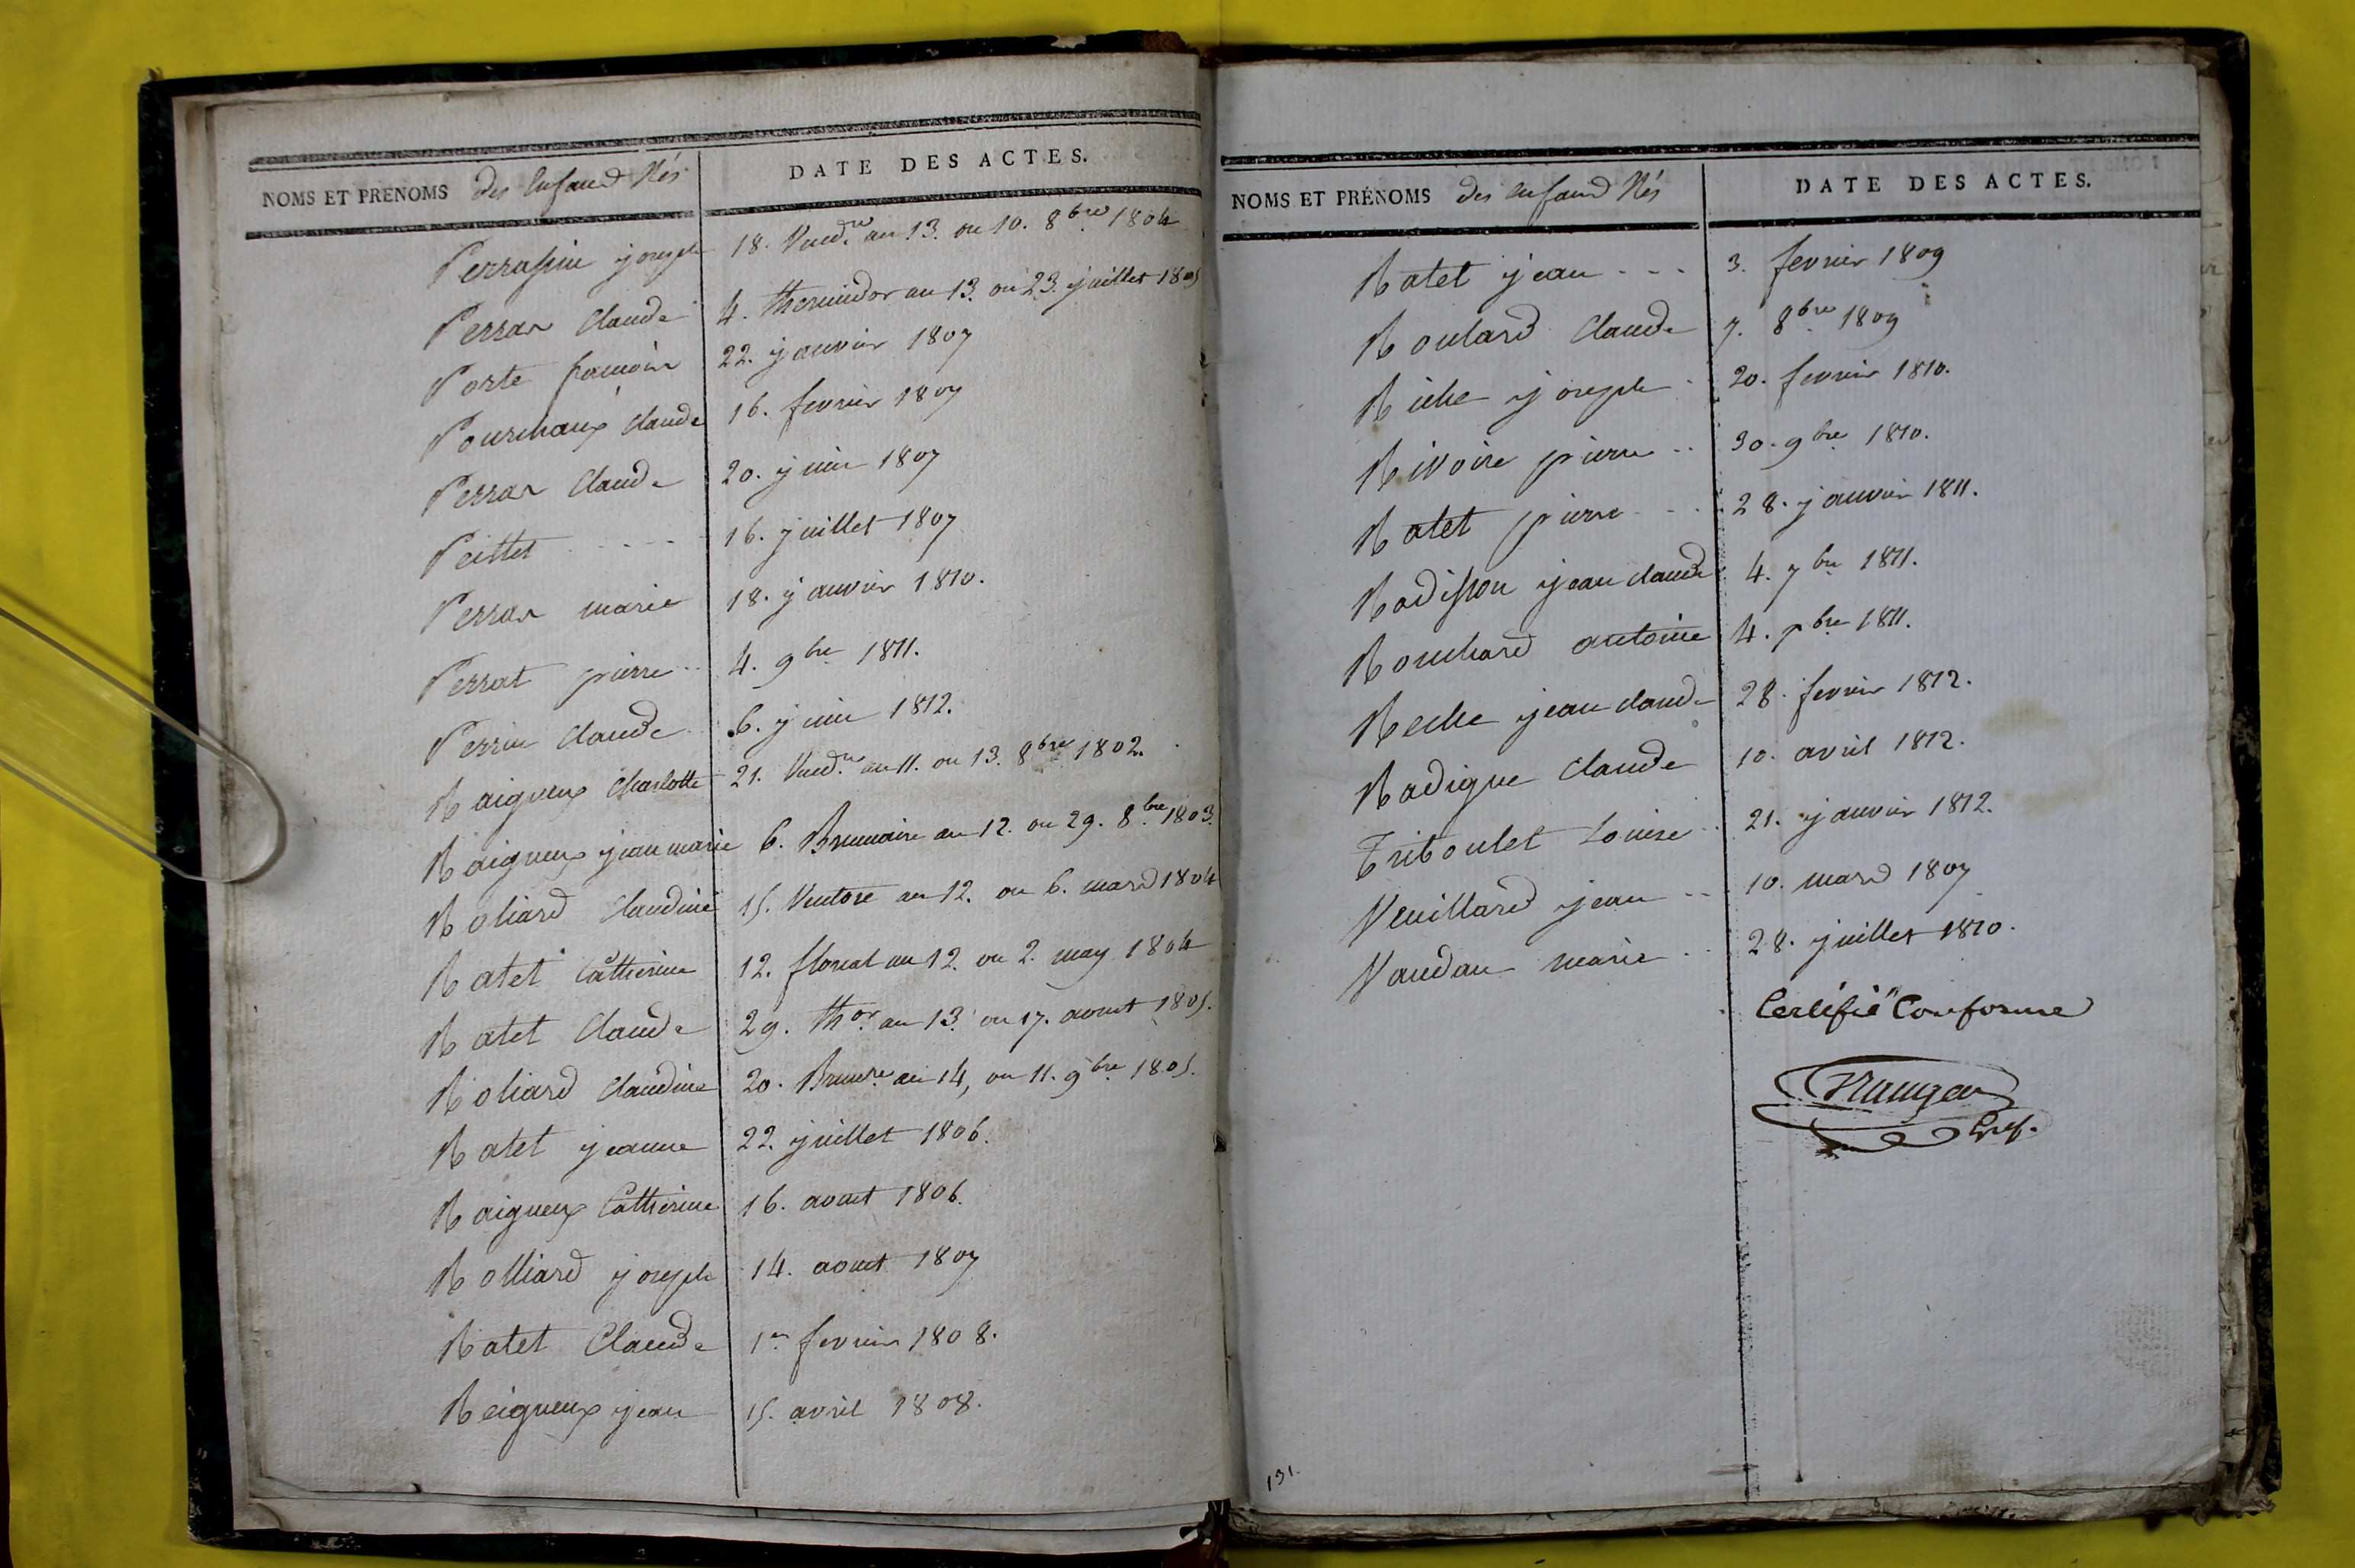 NOMS ET PRENOMS des Enfand Nés DATE DES ACTES.
Perrassin joseph 18. Vend.re an 13. ou 10. 8bre 1804
Perrar Claude 4. thermidor an 13. ou 23. juillet 1805
Porte francois 22. janvier 1807
Pourchaux Claude 16. fevrier 1807
Perrar Claude 20. juin 1807
Peittet 16. juillet 1807
Perrar marie 18. janvier 1810.
Perrat pierre 4. 9bre 1811.
Perrin Claude 6. juin 1812.
Raigneux Charlotte 21. Vend.re an 11. ou 13. 8bre 1802.
Raigneux jean marie 6. Brumaire an 12. ou 29. 8bre 1803.
Roliard Claudine 15. Ventose an 12. ou 6. mard 1804
Ratet Catherine 12. floreal an 12. ou 2. may 1804
Ratet Claude 29. thor an 13. ou 17. aoust 1805.
Roliard Claudine 20. Brumre an 14, ou 11. 9bre 1805.
Ratet jeanne 22. juillet 1806.
Raigneux Catherine 16. aoust 1806.
Rolliard joseph 14. aoust 1807
Ratet Claude 1er fevrier 1808.
Reigneux jean 15. avril 1808.
NOMS ET PRÉNOMS des Enfand Nés DATE DES ACTES.
Ratet jean 3. fevrier 1809
Roulard Claude 7. 8bre 1809
Riche joseph 20. fevrier 1810.
Rivoire pierre 30. 9bre 1810.
Ratet pierre 28. janvier 1811.
Radisson jean claude 4. 7bre 1811.
Rouchard antoine 4. 7bre 1811.
Reche jean claude 28. fevrier 1812.
Radigue Claude 10. avril 1812.
Triboulet Louise 21. janvier 1812.
Veuillard jean 10. mard 1807
Vaudan marie 28. juillet 1810.
Certifié Conforme
Gref.
131.